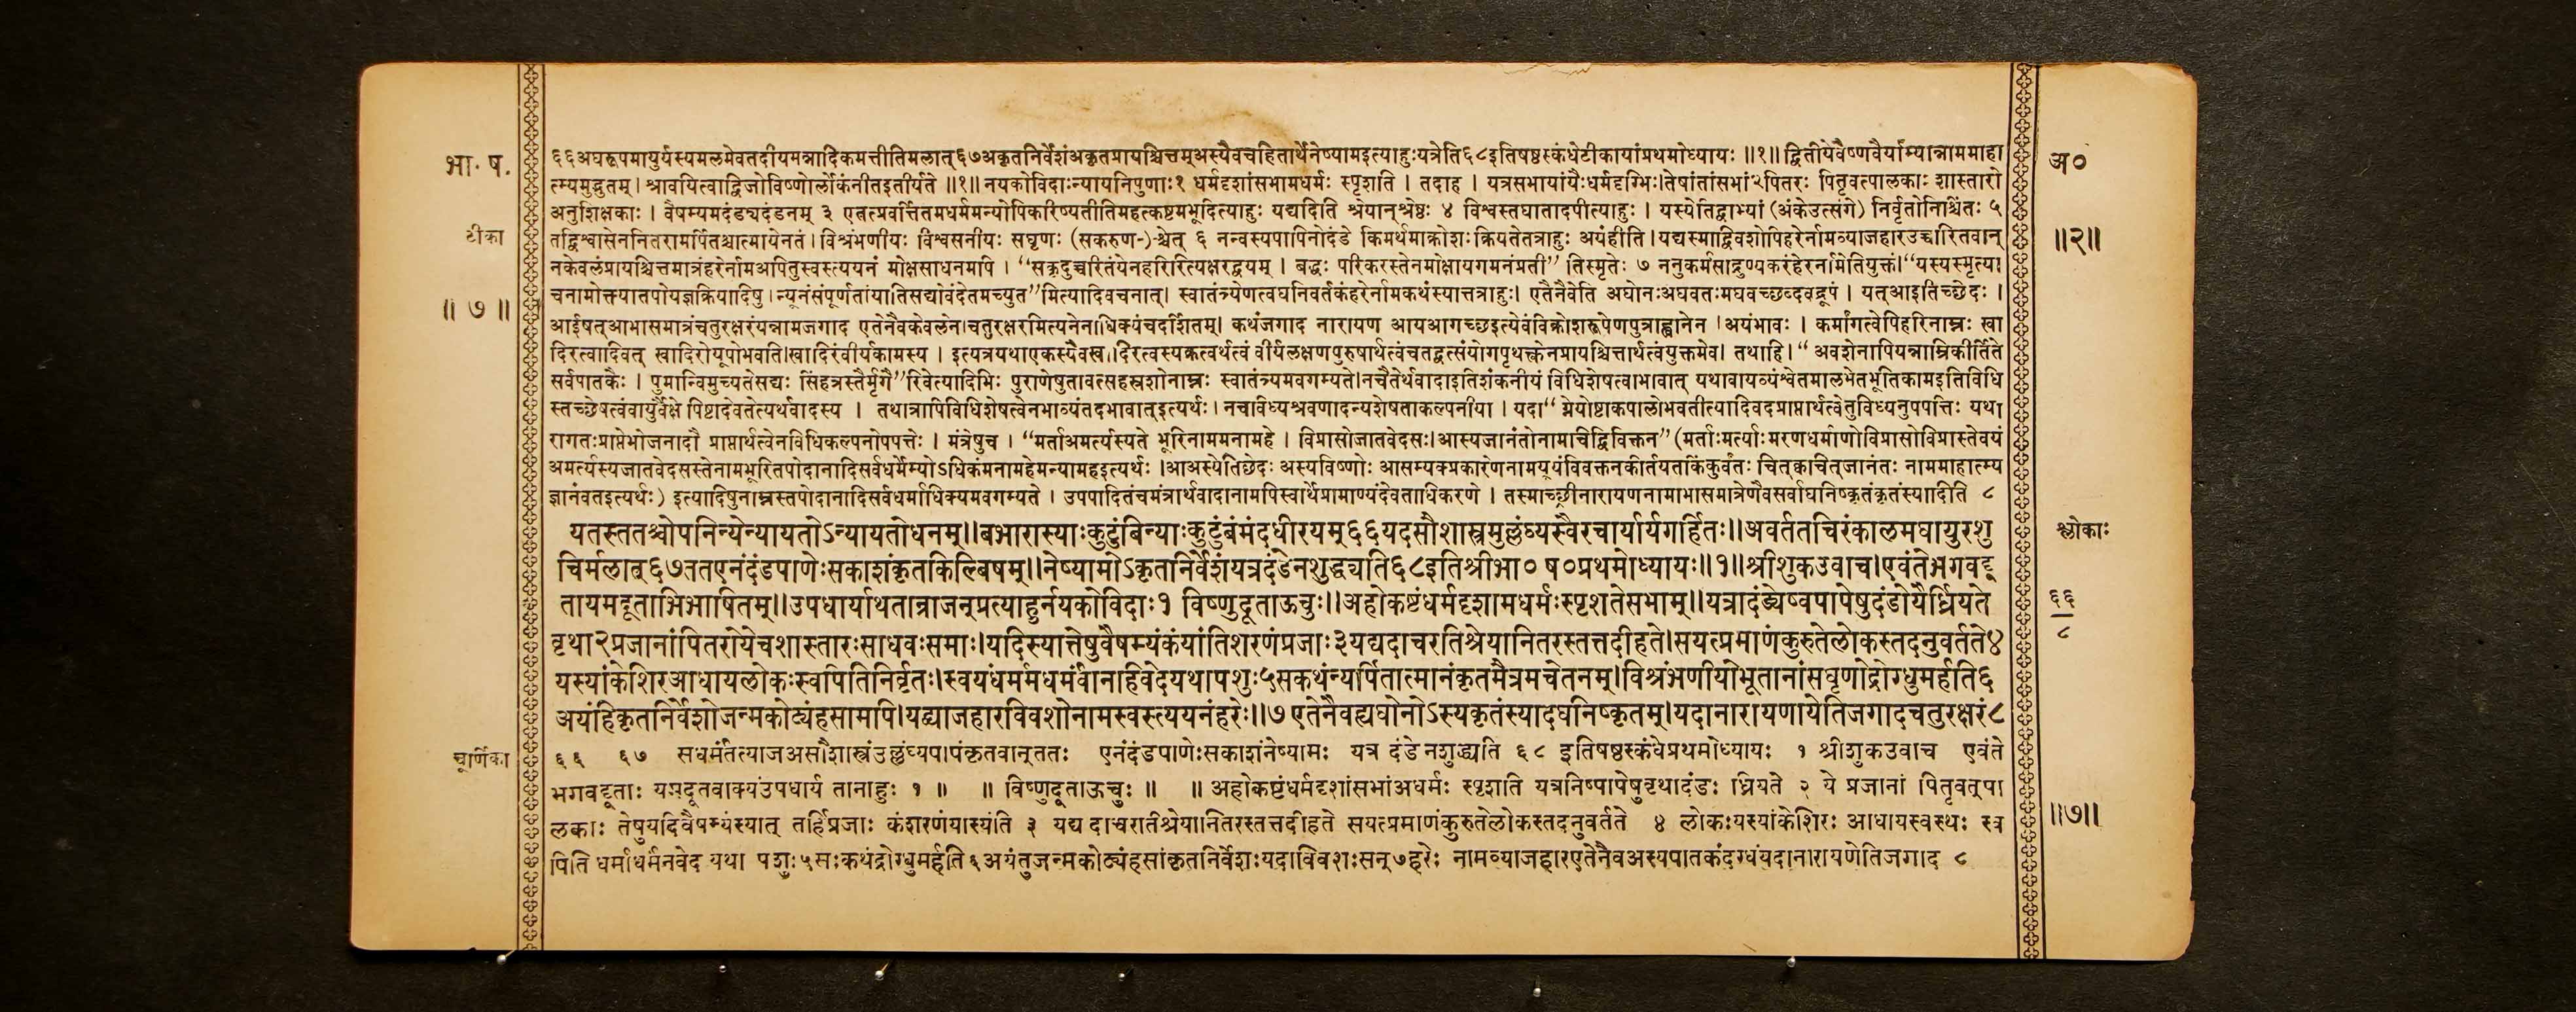 भा. ष.
टीका
॥ ७ ॥
६६अघरूपमायुर्यस्यमलमेवतदीयमन्नादिकमत्तीतिमलात्६७अकृतनिर्वेशंअकृतप्रायश्चित्तम्अस्यैवचहितार्थेनेष्यामइत्याहुःयत्रेति६८इतिषष्ठस्कंधेटीकायांप्रथमोध्यायः ॥१॥ द्वितीयेवैष्णवैर्याम्यान्नाममाहा
त्म्यमुद्भुतम्। श्रावयित्वाद्विजोविष्णोर्लोकंनीतइतीर्यते ॥१॥ नयकोविदाःन्यायनिपुणाः१ धर्मदृशांसभामधर्मः स्पृशति । तदाह । यत्रसभायांयैःधर्मदृग्भिः।तेषांतांसभां२पितरः पितृवत्पालकाः शास्तारो
अनुशिक्षकाः । वैषम्यमदंड्यदंडनम् ३ एतत्प्रवर्त्तितमधर्ममन्योपिकरिष्यतीतिमहत्कष्टमभूदित्याहुः यद्यदिति श्रेयान्श्रेष्ठः ४ विश्वस्तघातादपीत्याहुः । यस्येतिद्वाभ्यां (अंकेउत्संगे) निर्वृतोनिश्चिंतः ५
तद्विश्वासेननितरामर्पितश्चात्मायेनतं। विश्रंभणीयः विश्वसनीयः सघृणः (सकरुण-)श्चेत् ६ नन्वस्यपापिनोदंडे किमर्थमाक्रोशःक्रियतेतत्राहुः अयंहीति।यद्यस्माद्विवशोपिहरेर्नामव्याजहारउच्चारितवान्
नकेवलंप्रायश्चित्तमात्रंहरेर्नामअपितुस्वस्त्ययनं मोक्षसाधनमपि । “सकृदुच्चरितंयेनहरिरित्यक्षरद्वयम् । बद्धः परिकरस्तेनमोक्षायगमनंप्रती” तिस्मृतेः ७ ननुकर्मसाद्गुण्यकरंहेरर्नामेतियुक्तं।“यस्यस्मृत्या
चनामोक्त्यातपोयज्ञक्रियादिषु।न्यूनंसंपूर्णतांयातिसद्योवंदेतमच्युत”मित्यादिवचनात्। स्वातंत्र्येणत्वघनिवर्तकंहरेर्नामकथंस्यात्तत्राहुः। एतेनैवेति अघोनःअघवतःमघवच्छब्दवद्रूपं । यत्आइतिच्छेदः ।
आईषत्आभासमात्रंचतुरक्षरंयन्नामजगाद एतेनैवकेवलेन।चतुरक्षरमित्यनेनाधिक्यंचदर्शितम्। कथंजगाद नारायण आयआगच्छइत्येवंविक्रोशरूपेणपुत्राह्वानेन ।अयंभावः । कर्मांगत्वेपिहरिनाम्नः खा
दिरत्वादिवत् खादिरोयूपोभवति।खादिरंवीर्यकामस्य । इत्यत्रयथाएकस्यैवखादिरत्वस्यक्रत्वर्थत्वं वीर्यलक्षणपुरुषार्थत्वंचतद्वत्संयोगपृथक्त्वेनप्रायश्चित्तार्थत्वंयुक्तमेव। तथाहि।“ अवशेनापियन्नाम्निकीर्तिते
सर्वपातकैः । पुमान्विमुच्यतेसद्यः सिंहत्रस्तैर्मृगै”रिवेत्यादिभिः पुराणेषुतावत्सहस्रशोनाम्नः स्वातंत्र्यमवगम्यते।नचैतेर्थवादाइतिशंकनीयं विधिशेषत्वाभावात् यथावायव्यंश्वेतमालभेतभूतिकामइतिविधि
स्तच्छेषत्वंवायुर्वैक्षे पिष्टादेवतेत्यर्थवादस्य । तथात्रापिविधिशेषत्वेनभाव्यंतदभावात्इत्यर्थः। नचाविध्यश्रवणादन्यशेषताकल्पनीया । यदा“ ग्नेयोष्टाकपालोभवतीत्यादिवदप्राप्तार्थत्वेतुविध्यनुपपत्तिः यथा
रागतःप्राप्तेभोजनादौ प्राप्तार्थत्वेनविधिकल्पनोपपत्तेः । मंत्रेषुच । “मर्ताअमर्त्यस्यते भूरिनाममनामहे । विप्रासोजातवेदसः।आस्यजानंतोनामाचिद्विविक्तन” (मर्ताःमर्त्याःमरणधर्माणोविप्रासोविप्रास्तेवयं
अमर्त्यस्यजातवेदसस्तेनामभूरितपोदानादिसर्वधर्मेभ्योऽधिकंमनामहेमन्यामहइत्यर्थः ।आअस्येतिछेदः अस्यविष्णोः आसम्यक्प्रकारेणनामयूयंविवक्तनकीर्तयतकिंकुर्वंतः चित्काचित्जानंतः नाममाहात्म्य
ज्ञानंवतइत्यर्थः) इत्यादिषुनाम्नस्तपोदानादिसर्वधर्माधिक्यमवगम्यते । उपपादितंचमंत्रार्थवादानामपिस्वार्थेप्रामाण्यंदेवताधिकरणे । तस्माच्छ्रीनारायणनामाभासमात्रेणैवसर्वाघनिष्कृतंकृतंस्यादिति ८
यतस्ततश्चोपनिन्येन्यायतोऽन्यायतोधनम्।।बभारास्याःकुटुंबिन्याःकुटुंबंमंदधीरयम्६६यदसौशास्त्रमुल्लंघ्यस्वैरचार्यार्यगर्हितः।।अवर्ततचिरंकालमघायुरशु
चिर्मलात्६७ततएनंदंडपाणेःसकाशंकृतकिल्बिषम्।।नेष्यामोऽकृतनिर्वेशंयत्रदंडेनशुद्ध्यति६८इतिश्रीभा० ष०प्रथमोध्यायः।।१।।श्रीशुकउवाच।एवंतेभगवद्दू
तायमदूताभिभाषितम्।।उपधार्याथतान्राजन्प्रत्याहुर्नयकोविदाः१ विष्णुदूताऊचुः।।अहोकष्टंधर्मदृशामधर्मःस्पृशतेसभाम्।।यत्रादंड्येष्वपापेषुदंडोयैर्ध्रियते
वृथा२प्रजानांपितरोयेचशास्तारःसाधवःसमाः।यदिस्यात्तेषुवैषम्यंकंयांतिशरणंप्रजाः३यद्यदाचरतिश्रेयानितरस्तत्तदीहते।सयत्प्रमाणंकुरुतेलोकस्तदनुवर्तते४
यस्यांकेशिरआधायलोकःस्वपितिनिर्वृतः।स्वयंधर्ममधर्मंवानाहिवेदयथापशुः५सकथंन्यर्पितात्मानंकृतमैत्रमचेतनम्।विश्रंभणीयोभूतानांसघृणोद्रोग्धुमर्हति६
अयंहिकृतनिर्वेशोजन्मकोट्यंहसामपि।यद्व्याजहारविवशोनामस्वस्त्ययनंहरेः।।७ एतेनैवह्यघोनोऽस्यकृतंस्यादघनिष्कृतम्।यदानारायणायेतिजगादचतुरक्षरं८
चूर्णिका
६६ ६७ सधर्मंतत्याजअसौशास्त्रंउल्लंघ्यपापंकृतवान्ततः एनंदंडपाणेःसकाशंनेष्यामः यत्र दंडेनशुद्ध्यति ६८ इतिषष्ठस्कंधेप्रथमोध्यायः १ श्रीशुकउवाच एवंते
भगवद्दूताः यमदूतवाक्यंउपधार्य तानाहुः १ ॥ ॥ विष्णुदूताऊचुः ॥ ॥ अहोकष्टंधर्मदृशांसभांअधर्मः स्पृशति यत्रनिष्पापेषुवृथादंडः ध्रियते २ ये प्रजानां पितृवत्पा
लकाः तेषुयदिवैषम्यंस्यात् तर्हिप्रजाः कंशरणंयास्यंति ३ यद्य दाचरतिश्रेयानितरस्तत्तदीहते सयत्प्रमाणंकुरुतेलोकस्तदनुवर्तते ४ लोकःयस्यांकेशिरः आधायस्वस्थः स्व
पिति धर्माधर्मंनवेद यथा पशुः५सःकथंद्रोग्धुमर्हति६अयंतुजन्मकोट्यंहसांकृतनिर्वेशःयदाविवशःसन्७हरेः नामव्याजहारएतेनैवअस्यपातकंदग्धंयदानारायणेतिजगाद ८
अ०
॥२॥
श्लोकाः
६६
८
॥७॥